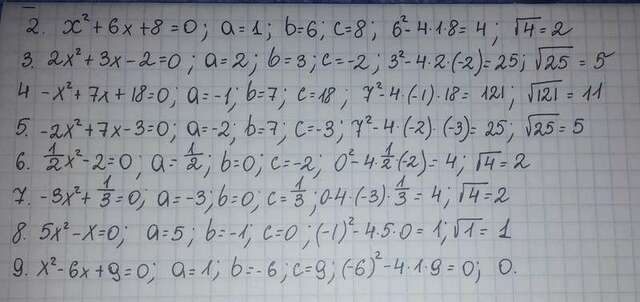 2. x²+6x+8=0; a=1; b=6; c=8; 6²-4·1·8=4; √4=2
3. 2x²+3x-2=0; a=2; b=3; c=-2; 3²-4·2·(-2)=25; √25=5
4 -x²+7x+18=0; a=-1; b=7; c=18; 7²-4·(-1)·18=121; √121=11
5. -2x²+7x-3=0; a=-2; b=7; c=-3; 7²-4·(-2)·(-3)=25; √25=5
6. 1/2x²-2=0; a=1/2; b=0; c=-2; 0²-4·1/2(-2)=4; √4=2
7. -3x²+1/3=0; a=-3; b=0; c=1/3; 0-4·(-3)·1/3=4; √4=2
8. 5x²-x=0; a=5; b=-1; c=0; (-1)²-4·5·0=1; √1=1
9. x²-6x+9=0; a=1; b=-6; c=9; (-6)²-4·1·9=0; 0.